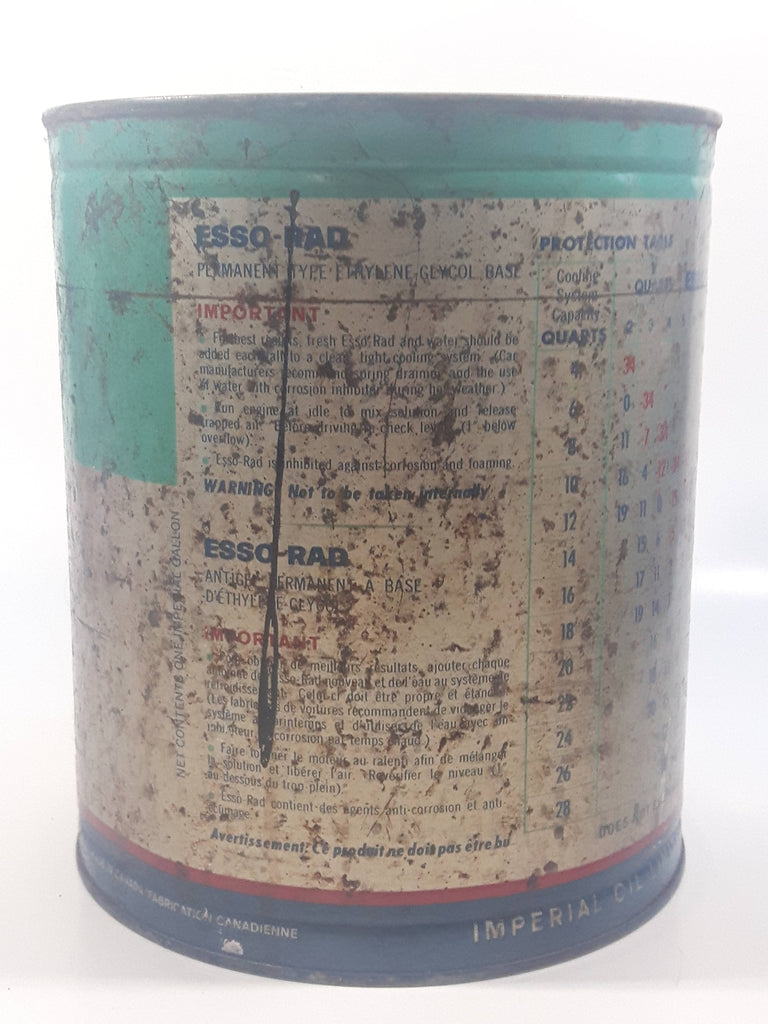 ESSO-RAD
PERMANENT TYPE ETHYLENE GLYCOL BASE
IMPORTANT
For best results, fresh Esso Rad and water should be
added each fall to a clean, tight cooling system. (Car
manufacturers recommend spring draining and the use
of water with corrosion inhibitor during hot weather.)
Run engine at idle to mix solution and release
trapped air. Before driving re-check level (1" below
overflow).
Esso-Rad is inhibited against corrosion and foaming.
WARNING: Not to be taken internally
ESSO-RAD
ANTIGEL PERMANENT À BASE
D'ÉTHYLÈNE GLYCOL
IMPORTANT
Pour obtenir de meilleurs résultats, ajouter chaque
automne de l'Esso-Rad nouveau et de l'eau au système de
Celui-ci doit être propre et étanche.
(Les fabricants de voitures recommandent de vidanger le
système au printemps et d'utiliser de l'eau avec
corrosion par temps chaud.)
Faire tourner le moteur au ralenti afin de mélanger
la solution et libérer l'air. Revérifier le niveau (1"
au-dessous du trop-plein).
Esso Rad contient des agents anti-corrosion et anti-
écumage.
Avertissement: Ce produit ne doit pas être bu
NET CONTENTS ONE IMPERIAL GALLON
PROTECTION TABLE
Cooling
System
Capacity
QUARTS
QUARTS
2 3 4 5
4 -34
6 0 -34
8 11 -7
10 16 4 -12
12 19 11 0
14 15 6
16 17 11
18 19 14
20
22
24
26
28
DOES
CANADA FABRICATION CANADIENNE
IMPERIAL OIL